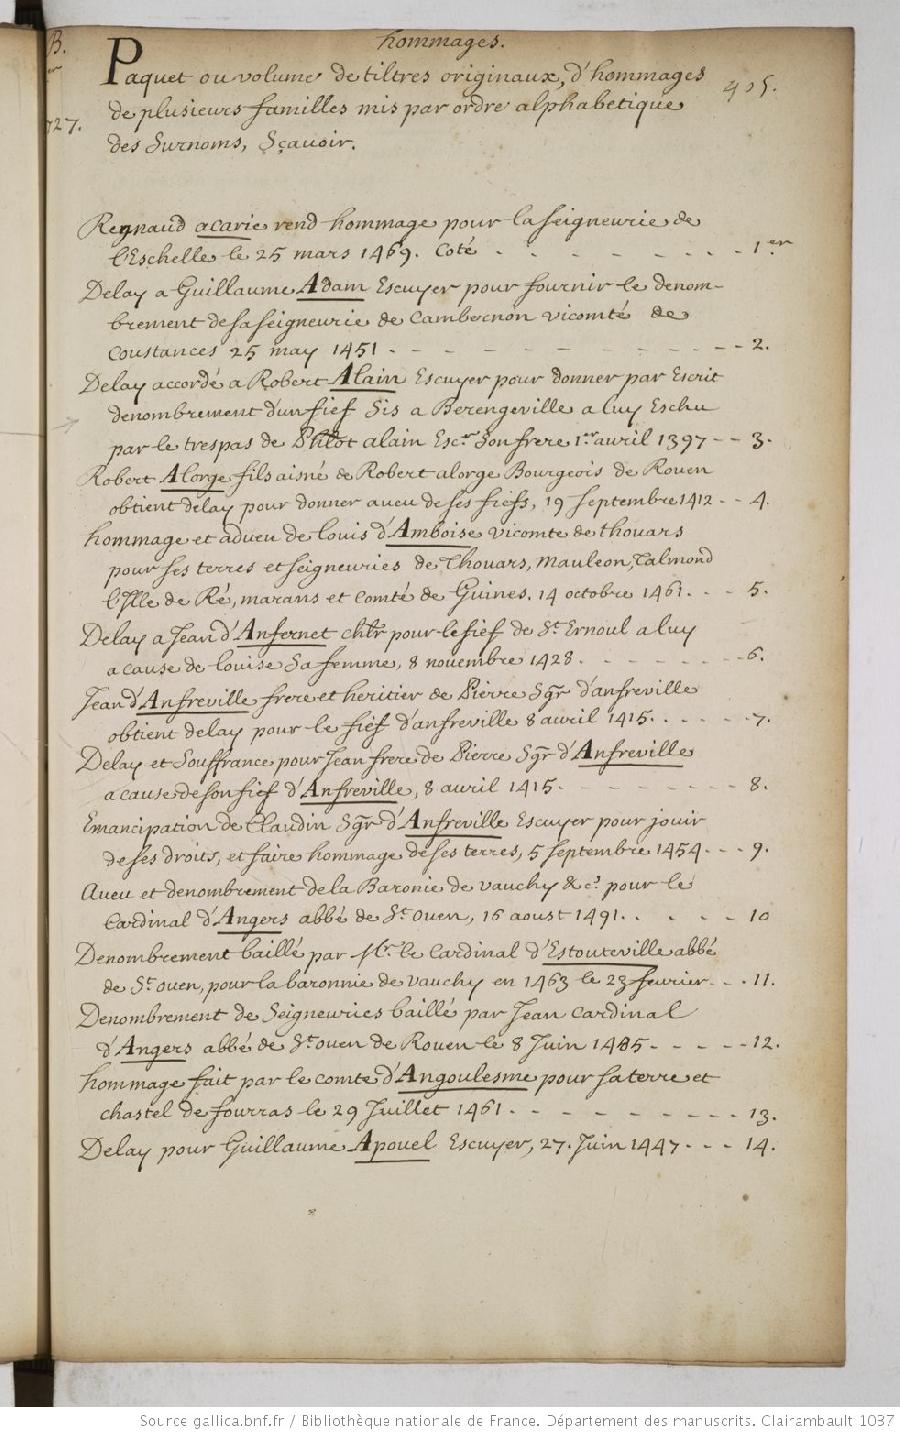 B.
hommages.
Paquet ou volume de tiltres originaux, d'hommages
405.
de plusieurs familles mis par ordre alphabetique
727.
des Surnoms, Sçavoir.
Regnaud acarie rend hommage pour la seigneurie de
l'Eschelle le 25 mars 1469. Coté . - . - - - - - 1er
Delay a Guillaume Adam Escuyer pour fournir le denom-
brement de sa seigneurie de Cambernon vicomté de
Coustances 25 may 1451 - - - - - - - - - - - 2.
Delay accordé a Robert Alain Escuyer pour donner par Escrit
denombrement d'un fief Sis a Berengeville a luy Eschu
par le trespas de Philot alain Escr. Son frere 1er avril 1397 - - 3.
Robert Alorge fils aisné de Robert alorge Bourgeois de Rouen
obtient delay pour donner aveu de ses fiefs, 19 septembre 1412 - - 4.
hommage et adveu de Louis d'Amboise vicomte de Thouars
pour ses terres et seigneuries de Thouars, Mauleon, Talmond
l'Isle de Ré, marans et Comté de Guines. 14 octobre 1461. - - 5.
Delay a Jean d'Anfernet chlr pour le fief de St. Ernoul a luy
a cause de Louise Sa femme, 8 novembre 1428. - - - - - - - 6.
Jean d'Anfreville frere et heritier de Pierre Sgr d'anfreville
obtient delay pour le fief d'anfreville 8 avril 1415. - - - - 7.
Delay et Souffrance pour Jean frere de Pierre Sgr d'Anfreville
a cause de son fief d'Anfreville, 8 avril 1415. - - - - - - - 8.
Emancipation de Claudin Sgr d'Anfreville Escuyer pour jouir
de ses droits, et faire hommage de ses terres, 5 septembre 1454 - - - 9.
Aveu et denombrement de la Baronie de vauchy &c. pour le
Cardinal d'Angers abbé de St. Ouen, 16 aoust 1491. . - - - 10
Denombrement baillé par Mr. le Cardinal d'Estouteville abbé
de St. ouen, pour la baronnie de vauchy en 1463 le 23 fevrier - - . 11.
Denombrement de Seigneuries baillé par Jean Cardinal
d'Angers abbé de St. ouen de Rouen le 8 Juin 1485 - - - - - 12.
hommage fait par le comte d'Angoulesme pour sa terre et
chastel de fourras le 29 Juillet 1461 . - - - - - - - - 13.
Delay pour Guillaume Apouel Escuyer, 27. Juin 1447 - - - 14.
Source gallica.bnf.fr / Bibliothèque nationale de France. Département des manuscrits. Clairambault 1037